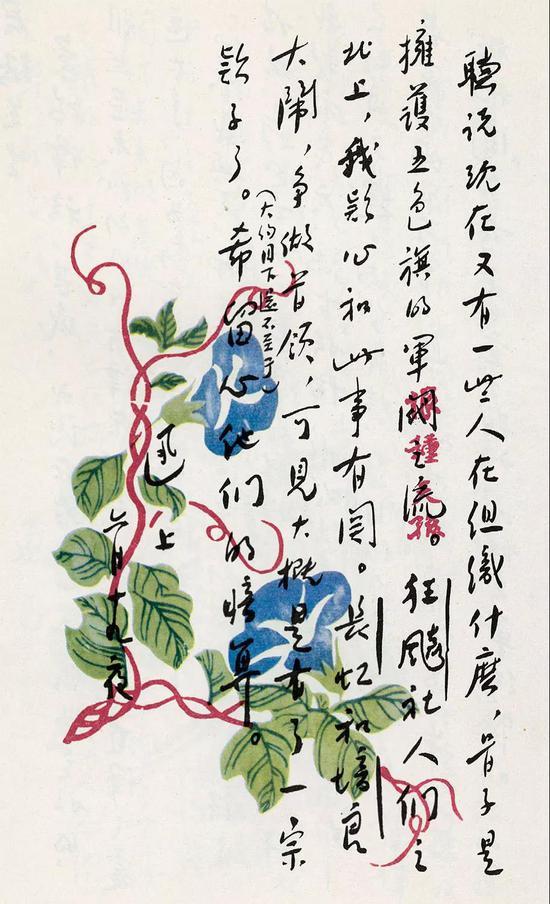 聽说现在又有一些人在组織什麽，骨子是
擁護五色旗的軍阀之流。狂飈社人们之
北上，我疑心和此事有関。長虹和培良
大鬧，争做首领，可見大概是有了一宗
（大约目下還不至于）
款子了。希留心他们的暗算。
迅 上
六月十九夜